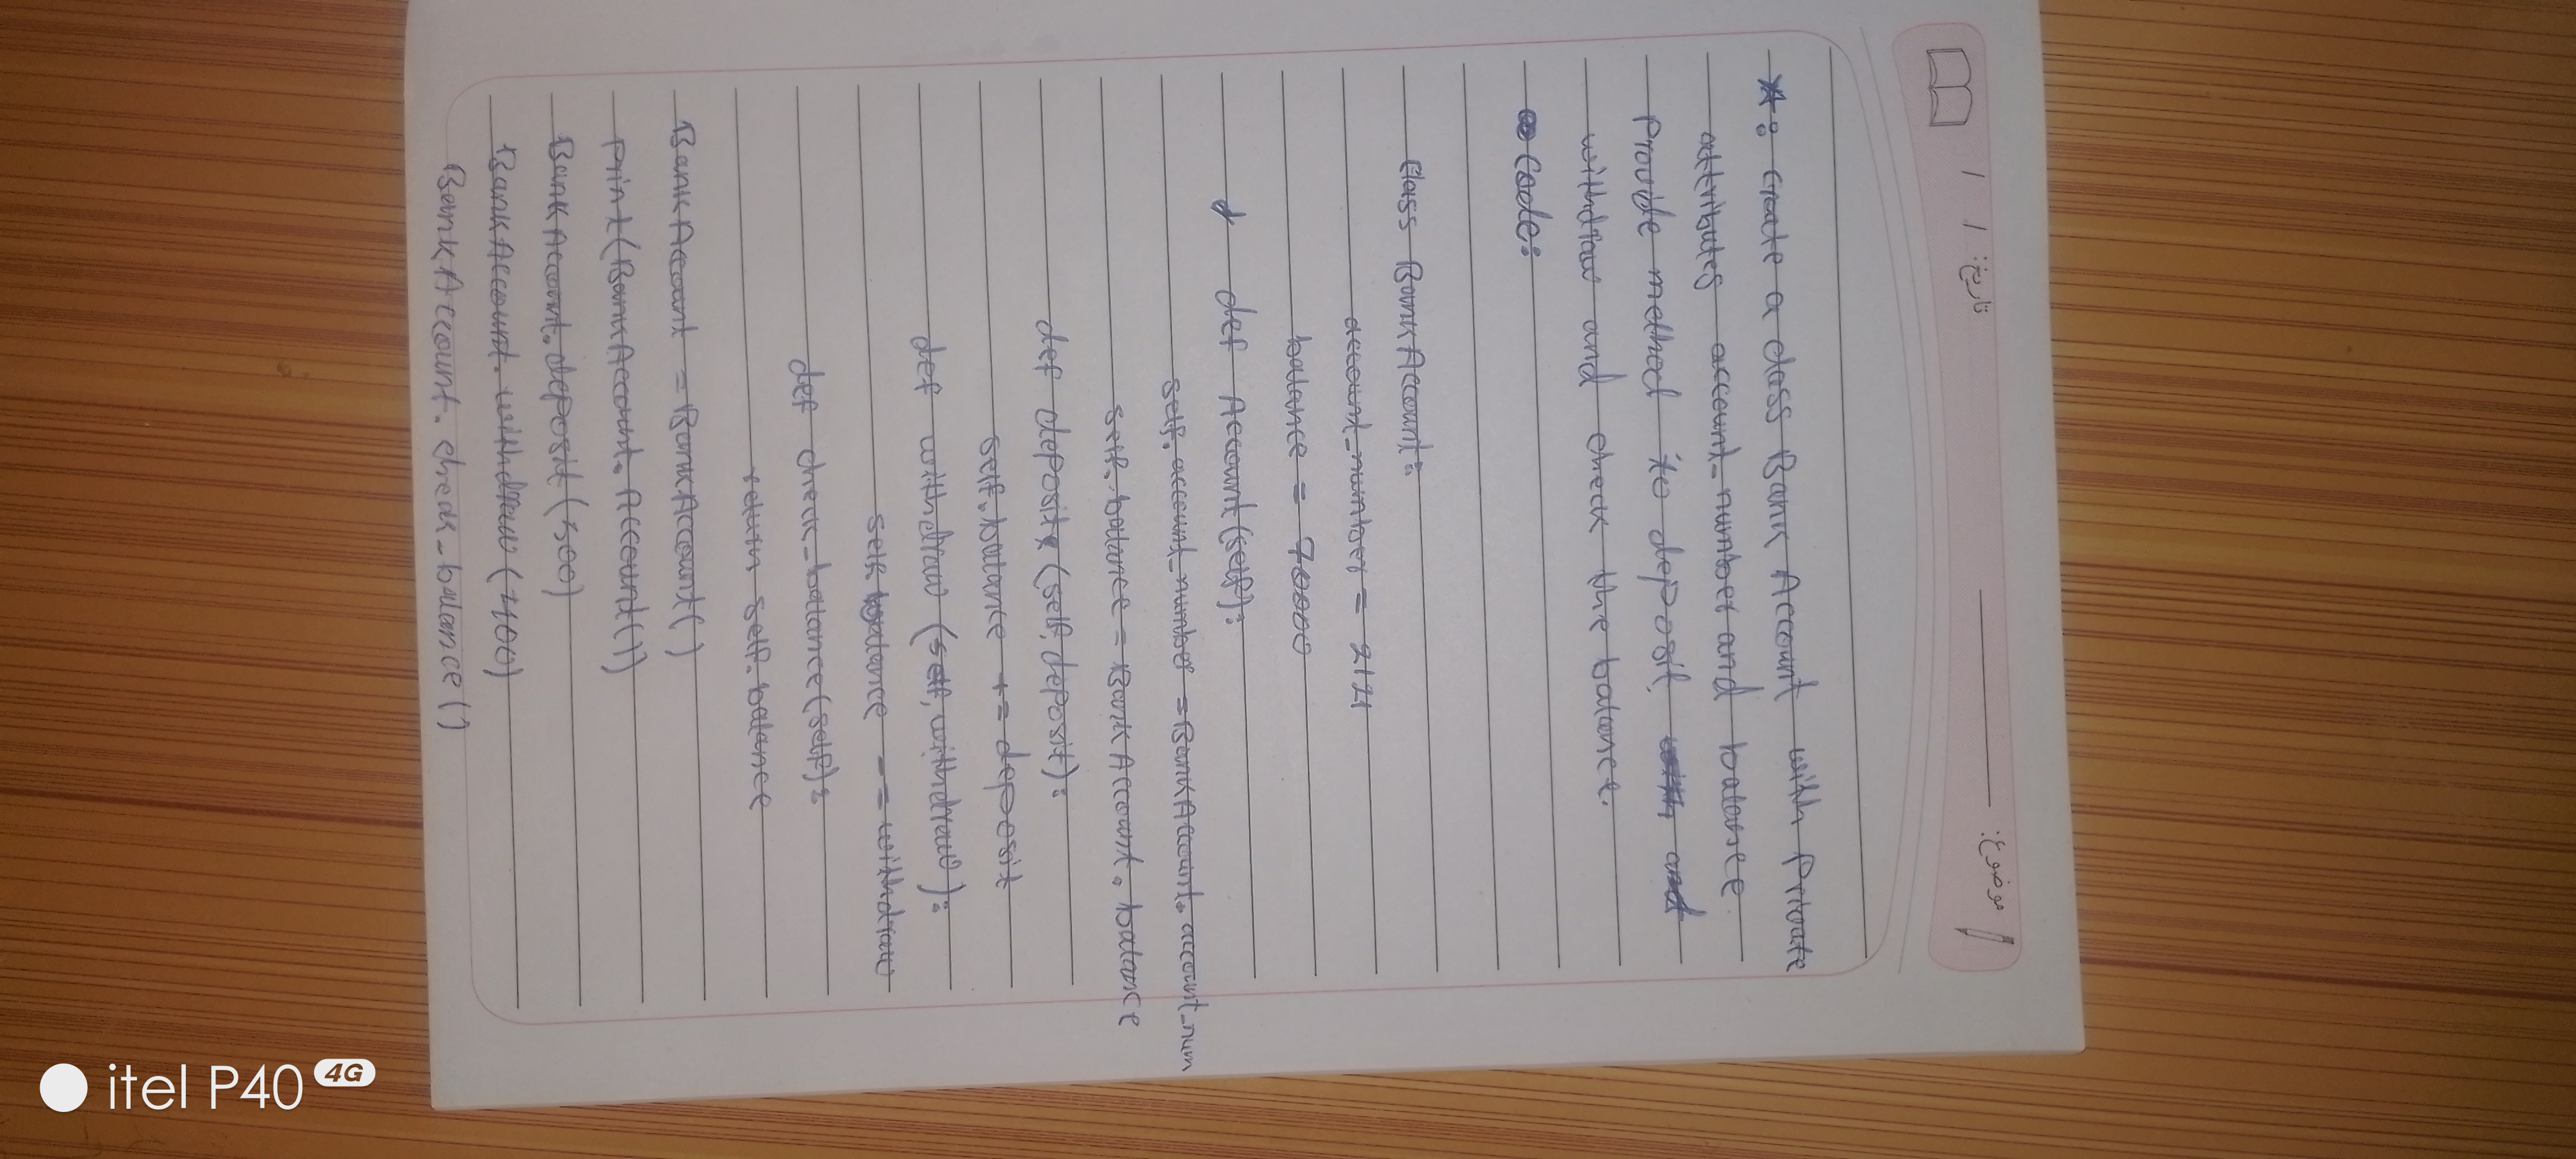 تاریخ: / / موضوع:
*: Create a class Bank Account with Private
attributes account_number and balance.
Provide method to deposit, and
withdraw and check the balance.
Code:
Class BankAccount:
account_number = 2121
balance = 70000
def Account(self):
self.account_number = BankAccount.account_num
self.balance = BankAccount.balance
def deposit (self, deposit):
self.balance += deposit
def withdraw (self, withdraw):
self balance -= withdraw
def check_balance(self):
return self.balance
BankAccount = BankAccount()
Print(BankAccount.Account())
BankAccount.deposit(300)
BankAccount.withdraw(400)
BankAccount.check_balance()
itel P40 4G